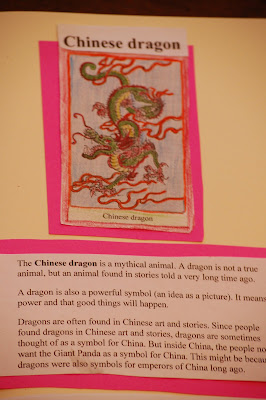 Chinese dragon
Chinese dragon
The Chinese dragon is a mythical animal. A dragon is not a true
animal, but an animal found in stories told a very long time ago.
A dragon is also a powerful symbol (an idea as a picture). It means
power and that good things will happen.
Dragons are often found in Chinese art and stories. Since people
found dragons in Chinese art and stories, dragons are sometimes
thought of as a symbol for China. But inside China, the people now
want the Giant Panda as a symbol for China. This might be because
dragons were also symbols for emperors of China long ago.